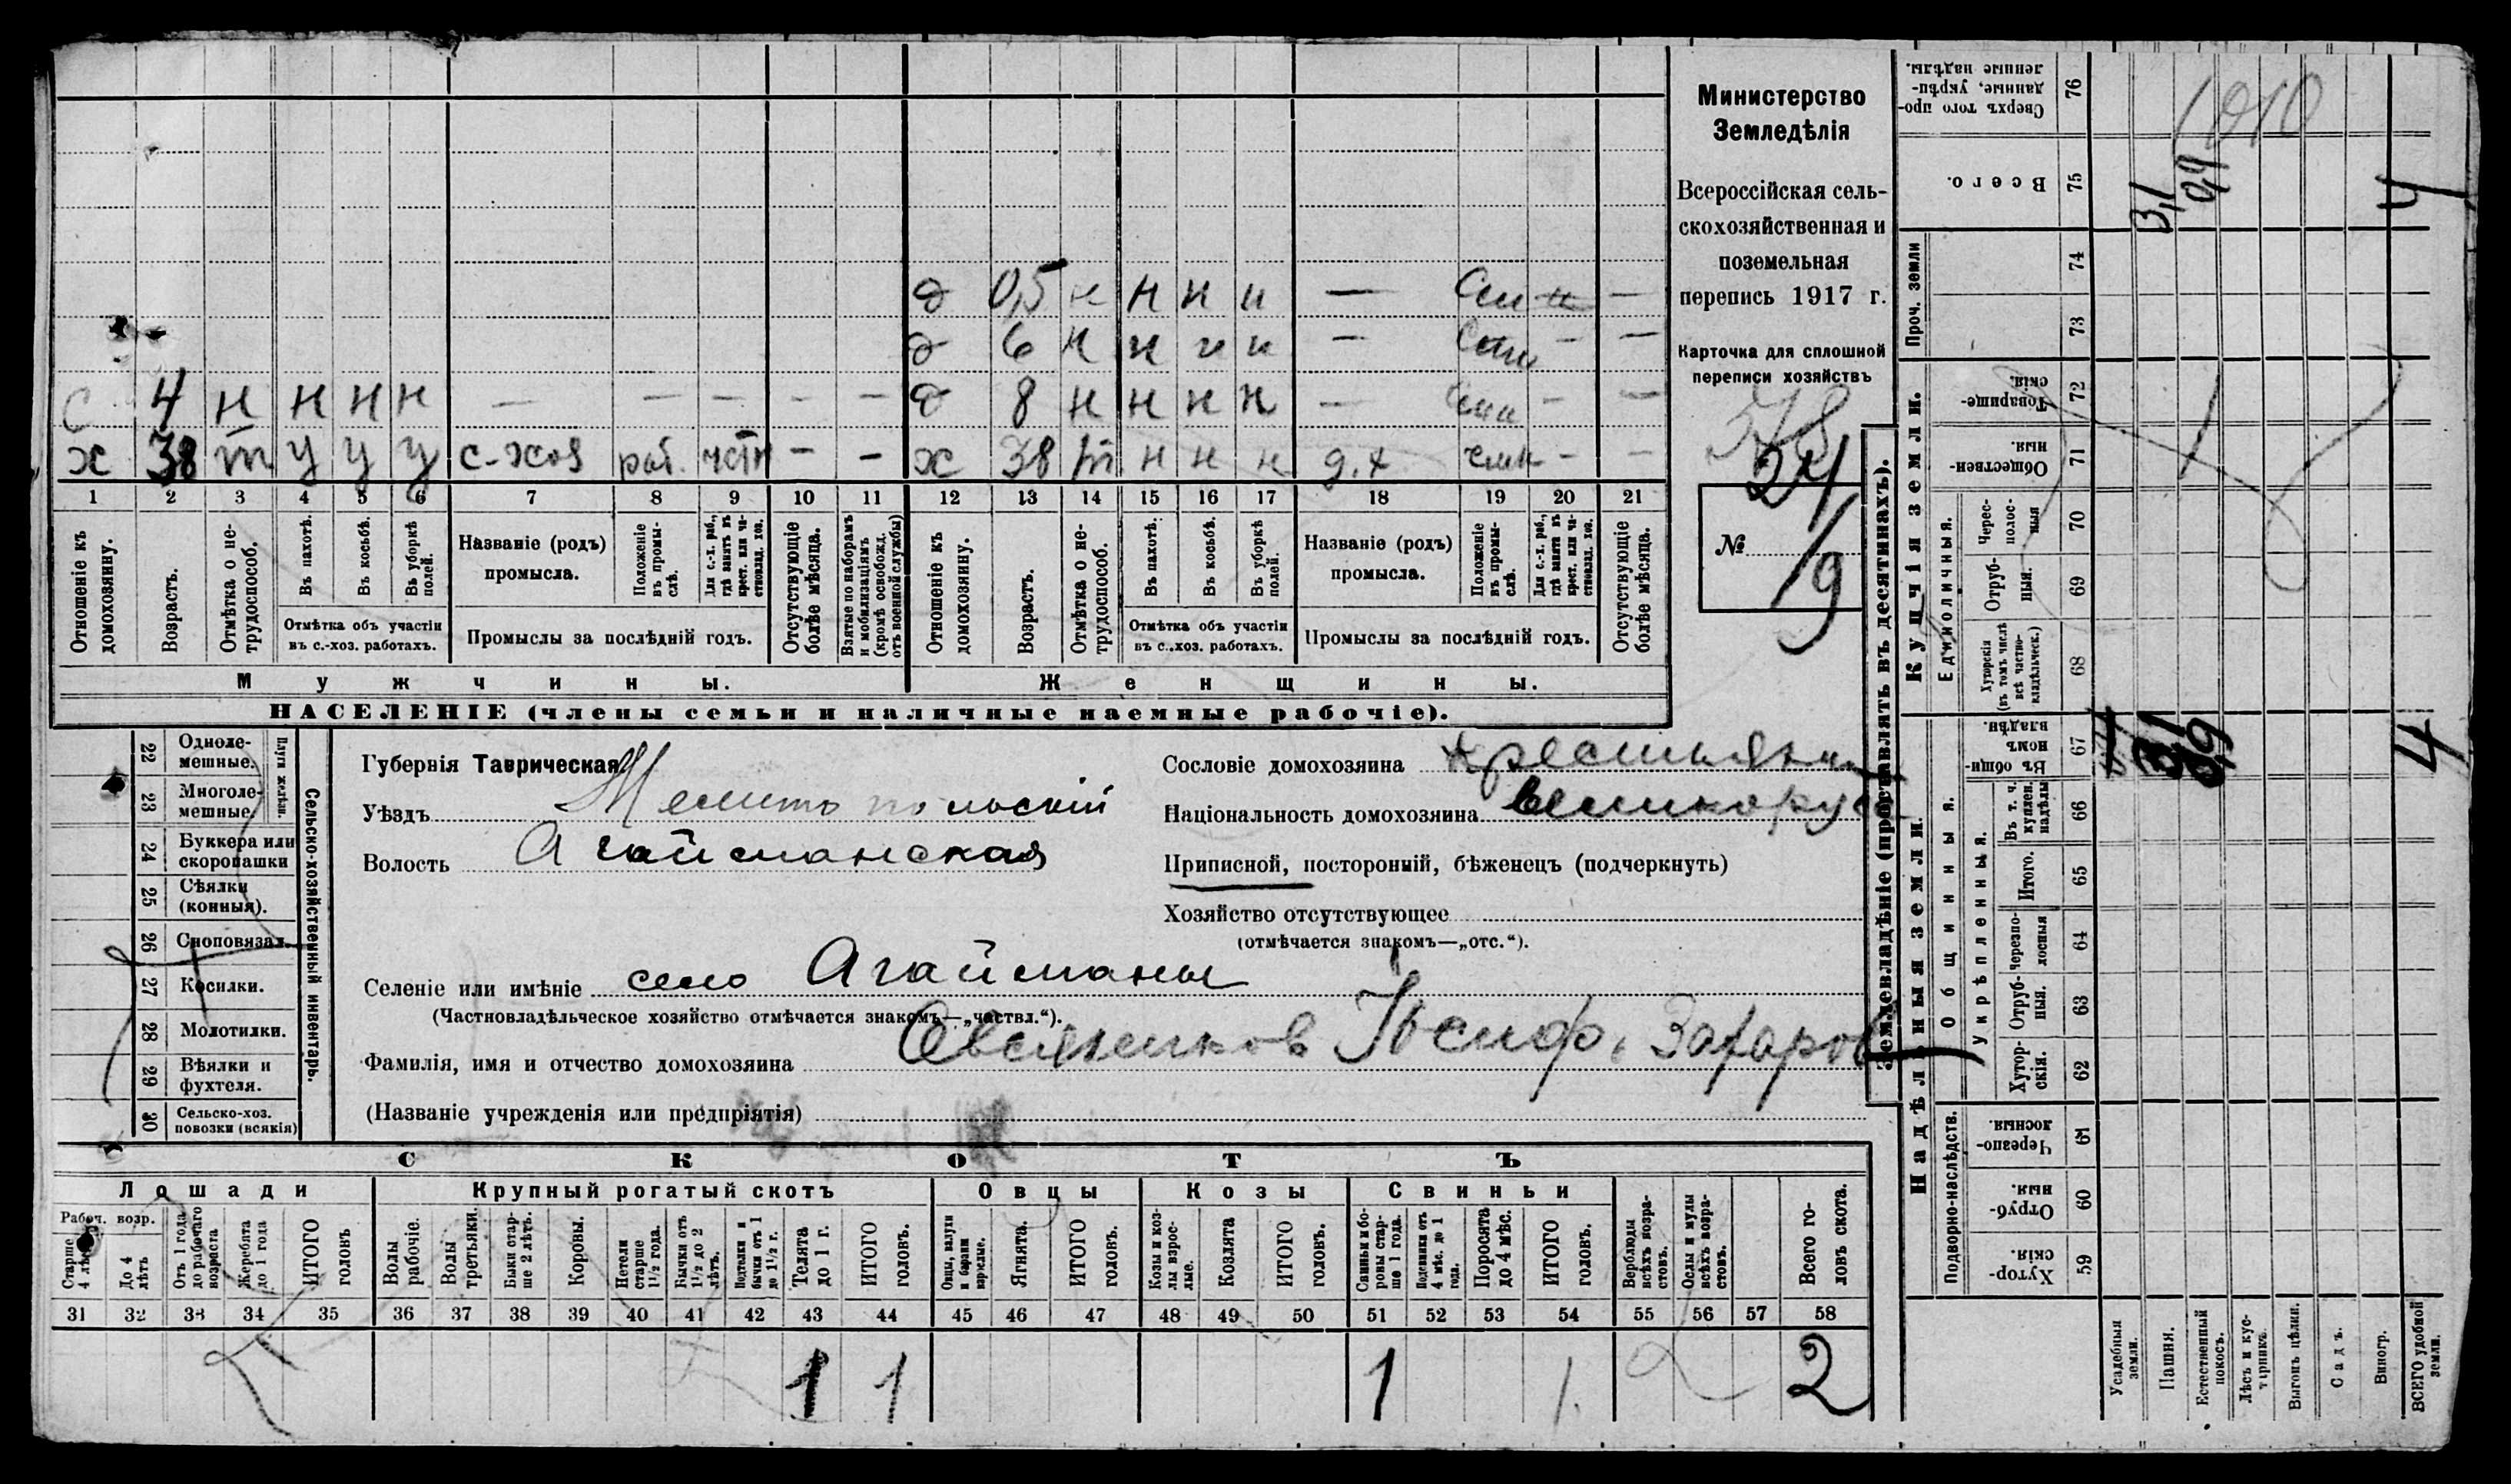 д 0,5 н н н н — —
д 6 н н н н — — —
с 4 н н н н — — — — — д 8 н н н н — — —
х 38 т у у у с-хоз раб. — — х 38 т н н н д.х — —
1 2 3 4 5 6 7 8 9 10 11 12 13 14 15 16 17 18 19 20 21
Отношеніе къ домохозяину.
Возрастъ.
Отмѣтка о не-трудоспособ.
Въ пахотѣ.
Въ косьбѣ.
Въ уборкѣ полей.
Отмѣтка объ участіи
въ с.-хоз. работахъ.
Названіе (родъ)
промысла.
Положеніе въ промы-слѣ.
Для с.-х. раб., гдѣ занятъ въ крест. или ча-стновлад. хоз.
Промыслы за послѣдній годъ.
Отсутствующіе болѣе мѣсяца.
Взятые по наборамъ и мобилизаціямъ (кромѣ освобожд. отъ военной службы)
Отношеніе къ домохозяину.
Возрастъ.
Отмѣтка о не-трудоспособ.
Въ пахотѣ.
Въ косьбѣ.
Въ уборкѣ полей.
Отмѣтка объ участіи
въ с.-хоз. работахъ.
Названіе (родъ)
промысла.
Положеніе въ промы-слѣ.
Для с.-х. раб., гдѣ занята въ крест. или ча-стновлад. хоз.
Промыслы за послѣдній годъ.
Отсутствующіе болѣе мѣсяца.
Мужчины.
Женщины.
НАСЕЛЕНІЕ (члены семьи и наличные наемные рабочіе).
Министерство
Земледѣлія
Всероссійская сель-
скохозяйственная и
поземельная
перепись 1917 г.
Карточка для сплошной
переписи хозяйствъ
24
№
19
Плуги желѣзн.
22 Одноле-мешные.
23 Многоле-мешные.
24 Буккера или скоропашки
25 Сѣялки (конныя).
26 Сноповязал.
27 Косилки.
28 Молотилки.
29 Вѣялки и фухтеля.
30 Сельско-хоз. повозки (всякія)
Сельско-хозяйственный инвентарь.
Губернія Таврическая
Уѣздъ Мелитопольскій
Волость Агайманская
Сословіе домохозяина крестьянин
Національность домохозяина великорус
Приписной, посторонній, бѣженецъ (подчеркнуть)
Хозяйство отсутствующее
(отмѣчается знакомъ—„отс.“).
Селеніе или имѣніе село Агайманы
(Частновладѣльческое хозяйство отмѣчается знакомъ—„частвл.“).
Фамилія, имя и отчество домохозяина Овсяников Іосиф. Захаров
(Названіе учрежденія или предпріятія)
СКОТЪ
Лошади
Крупный рогатый скотъ
Овцы
Козы
Свиньи
Рабоч. возр.
Старше 4 лѣтъ
До 4 лѣтъ
Отъ 1 года до рабочаго возраста
Жеребята до 1 года
ИТОГО головъ
Волы рабочіе.
Волы третьяки.
Быки стар-ше 2 лѣтъ.
Коровы.
Нетели старше 1½ года.
Бычки отъ 1½ до 2 лѣтъ.
Подтелки и бычки отъ 1 до 1½ г.
Телята до 1 г.
ИТОГО головъ.
Овцы, валухи и бараны взрослые.
Ягнята.
ИТОГО головъ.
Козы и коз-лы взрос-лые.
Козлята
ИТОГО головъ.
Свиньи и бо-ровы стар-ше 1 года.
Подсвинки отъ 4 мѣс. до 1 года.
Поросята до 4 мѣс.
ИТОГО головъ.
Верблюды всѣхъ возра-стовъ.
Ослы и мулы всѣхъ возра-стовъ.
Всего го-ловъ скота.
31 32 33 34 35 36 37 38 39 40 41 42 43 44 45 46 47 48 49 50 51 52 53 54 55 56 57 58
1 1 1 1 2
Землевладѣніе (проставлять въ десятинахъ).
Надѣльныя земли.
Купчія земли.
Проч. земли
Подворно-наслѣдств.
Общинныя.
Укрѣпленныя.
Единоличныя.
Сверхъ того про-данные, укрѣп-ленные надѣлы. 76
1010
Всего. 75
3,1 0,9 4
74
73
Товарище-скія. 72
Обществен-ныя 71
Черес-полос-ныя 70
Отруб-ныя. 69
Хуторскія (въ томъ числѣ всѣ частно-владѣльческ.) 68
Въ общин-номъ владѣн. 67
3,1 0,9 4
Въ т. ч. куплен. надѣлы 66
Итого. 65
Черезпо-лосныя 64
Отруб-ныя. 63
Хутор-скія. 62
Черезпо-лосныя. 61
Отруб-ныя. 60
Хутор-скія. 59
Усадебныя земли.
Пашня.
Естественный покосъ.
Лѣсъ и кус-тарникъ.
Выгонъ цѣлин.
Садъ.
Виногр.
ВСЕГО удобной земли.